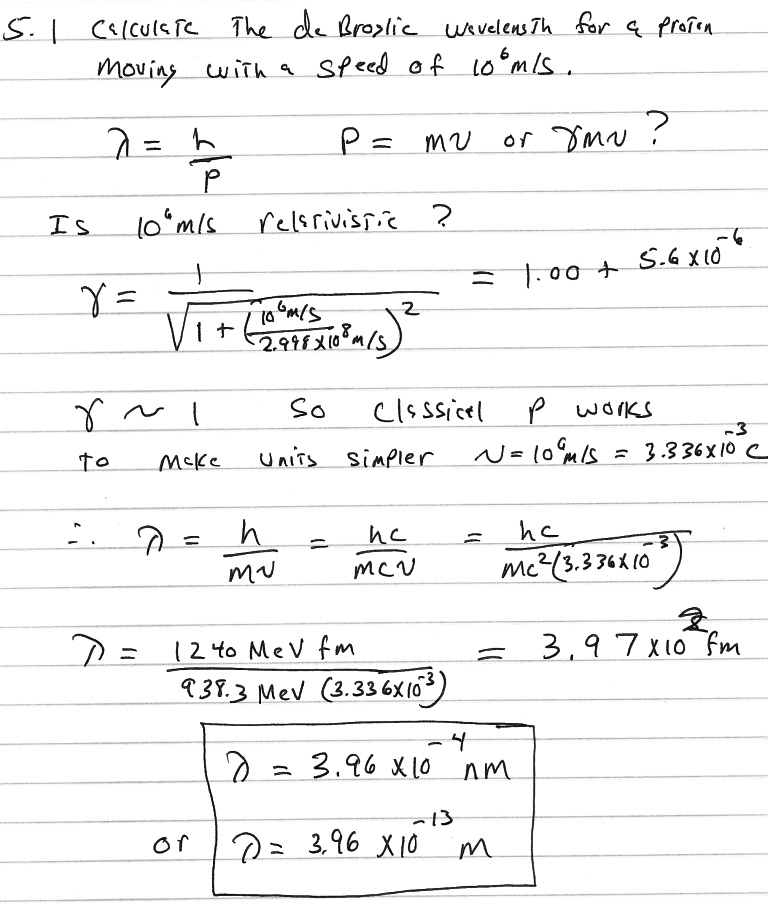 5.1 Calculate The de Broglie wavelength for a proton
moving with a speed of 10⁶ m/s.
λ = h/p    P = mv or γmv ?
Is 10⁶ m/s relativistic ?
γ = 1/√(1 + (10⁶ m/s / 2.998 x 10⁸ m/s)²) = 1.00 + 5.6 x 10⁻⁶
γ ~ 1 so classical p works
to make units simpler v = 10⁶ m/s = 3.336 x 10⁻³ c
∴ λ = h/mv = hc/mcv = hc/mc²(3.336 x 10⁻³)
λ = 1240 MeV fm / 938.3 MeV (3.336 x 10⁻³) = 3.97 x 10² fm
λ = 3.96 x 10⁻⁴ nm
or λ = 3.96 x 10⁻¹³ m